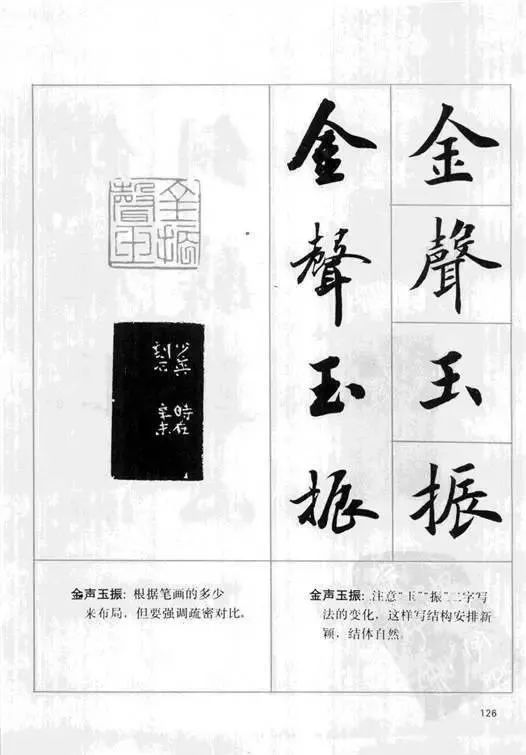 金聲玉振
金聲玉振
金聲玉振
金声玉振：根据笔画的多少
来布局，但要强调疏密对比。
金声玉振：注意“玉”“振”二字写
法的变化，这样写结构安排新
颖，结体自然。
126